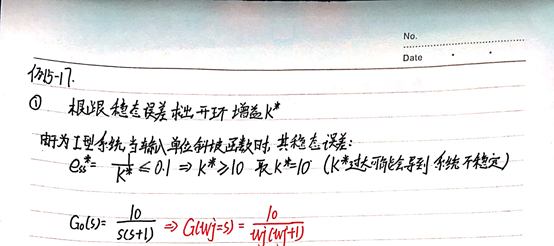 No.
Date
例5-17.
① 根据稳态误差求出开环增益K*
由于为I型系统,当输入单位斜坡函数时,其稳态误差:
ess* = 1/K* ≤ 0.1 ⇒ K* ≥ 10 取K*=10 (K*过大可能会导到系统不稳定)
G₀(s) = 10/s(s+1) ⇒ G(wj=s) = 10/wj(wj+1)